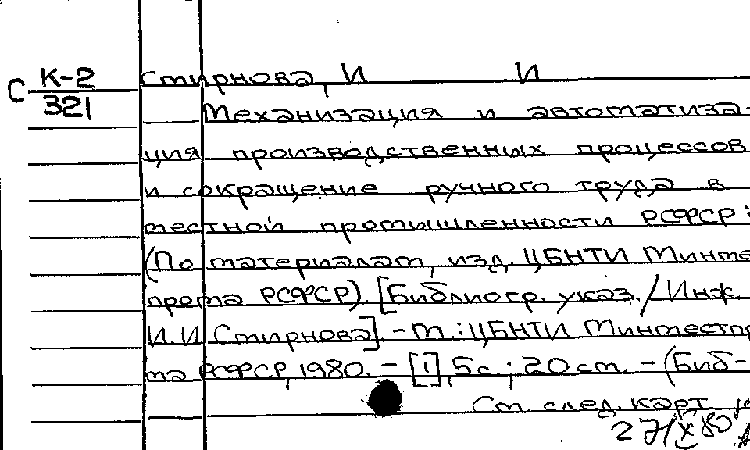 С К-2 Смирнова, И И
321 Механизация и автоматиза-
ция производственных процессов
и сокращение ручного труда в
местной промышленности РСФСР:
(По материалам, изд. ЦБНТИ Минме
прома РСФСР). [Библиогр. указ./Инж.
И.И Смирнова]. - М.: ЦБНТИ Минместпро
ма РСФСР, 1980. - [1], 5с.; 20см. - (Биб-
См. след. карт.
27/X 80